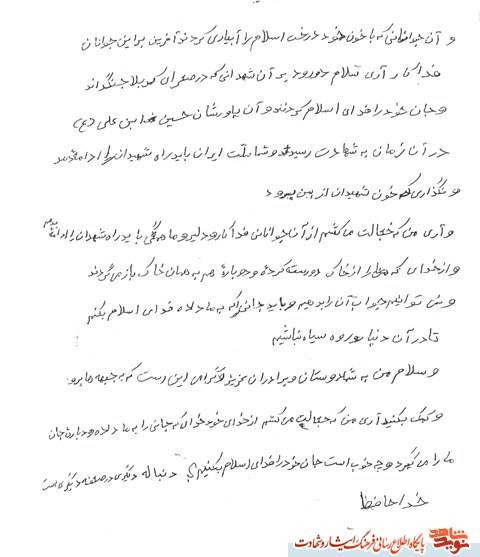 و آن جوانانی که با خون خود درخت اسلام را آبیاری کردند آفرین بر این جوانان
فداکار آری سلام و درود بر آن شهدانی که در صحرای کربلا جنگیدند
و جان خود را فدای اسلام کردند و آن یاورشان حسین ابن علی (ع)
در آن زمان به شهادت رسید و شما ملت ایران باید راه شهیدان را ادامه دهید
و نگذارید که خون شهیدان از بین برود
و آری من که خجالت می‌کشم از آن جوانانی فداکار و دلیر و ما همگی باید راه شهدان را ادامه بدهیم
و از خدای که ما را از خاک درست کرده و دوباره هم به همان خاک باز می‌گردند
و می‌توانیم جواب آن را بدهیم و باید جانی که به ما داده فدای اسلام بکنیم
تا در آن دنیا رو سیاه نباشیم
و سلام من به شما دوستان و برادران عزیز و گرامی این است که به جبهه ها برو
و کمک بکنید آری من که خجالت می‌کشم از خدای خود خدای که جانی را به ما داده و دوباره جان
ما را می‌گیرد و چه خوب است جان خود را فدای اسلام بکنیم دنباله دیگری در صفحه دیگری است
خدا حافظ
نوید شاهد پایگاه اطلاع رسانی فرهنگ ایثار و شهادت